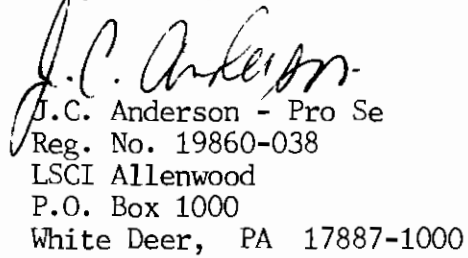 J.C. Anderson
J.C. Anderson - Pro Se
Reg. No. 19860-038
LSCI Allenwood
P.O. Box 1000
White Deer, PA 17887-1000